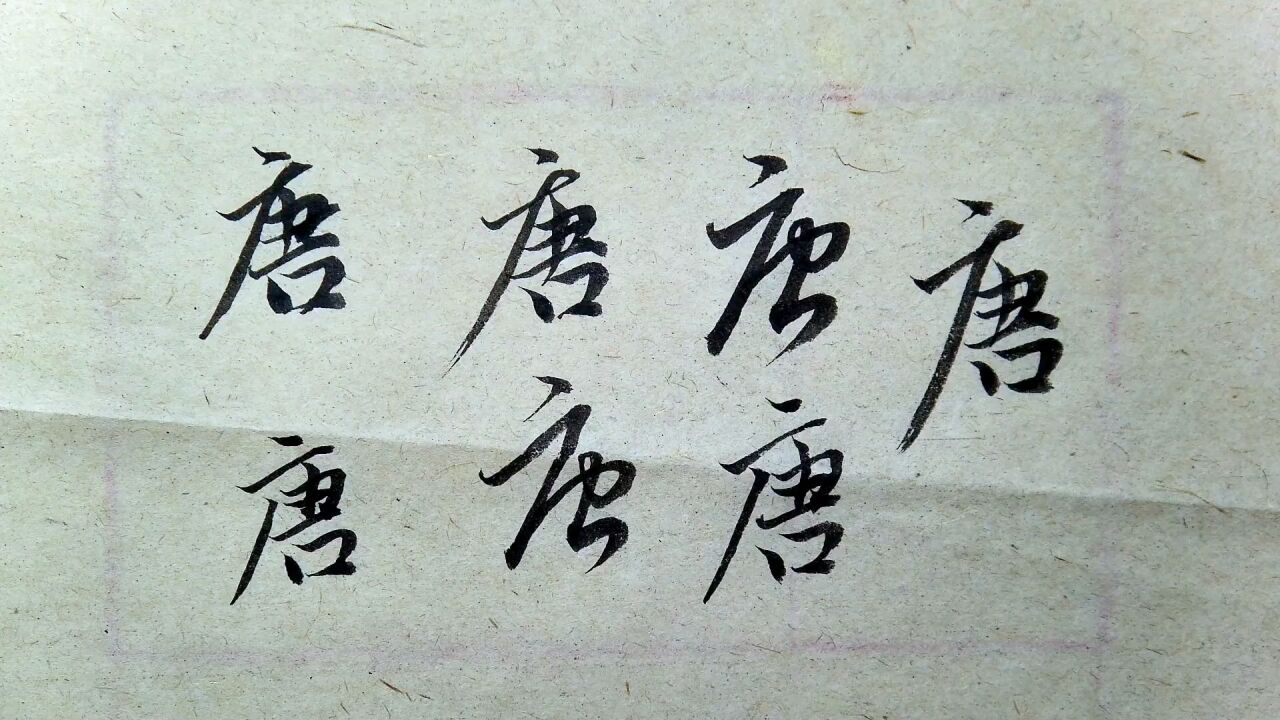 唐 唐 唐 唐
唐 唐 唐